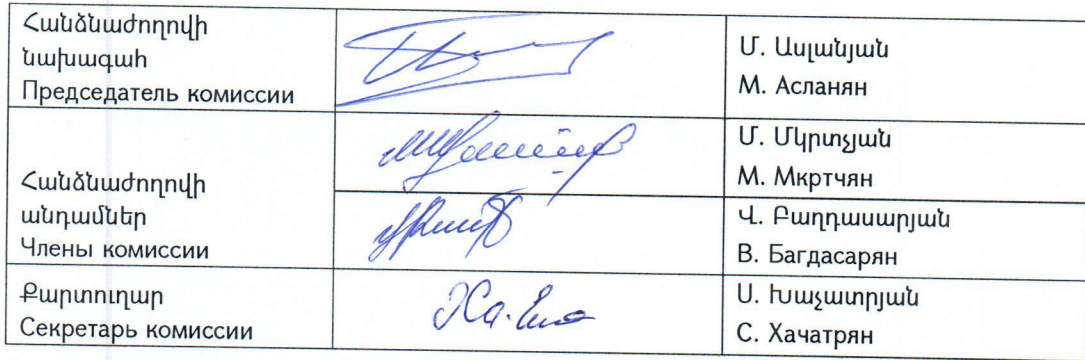 Հանձնաժողովի
նախագահ
Председатель комиссии
Մ. Ասլանյան
М. Асланян
Հանձնաժողովի
անդամներ
Члены комиссии
Մ. Մկրտչյան
М. Мкртчян
Վ. Բաղդասարյան
В. Багдасарян
Քարտուղար
Секретарь комиссии
Ս. Խաչատրյան
С. Хачатрян